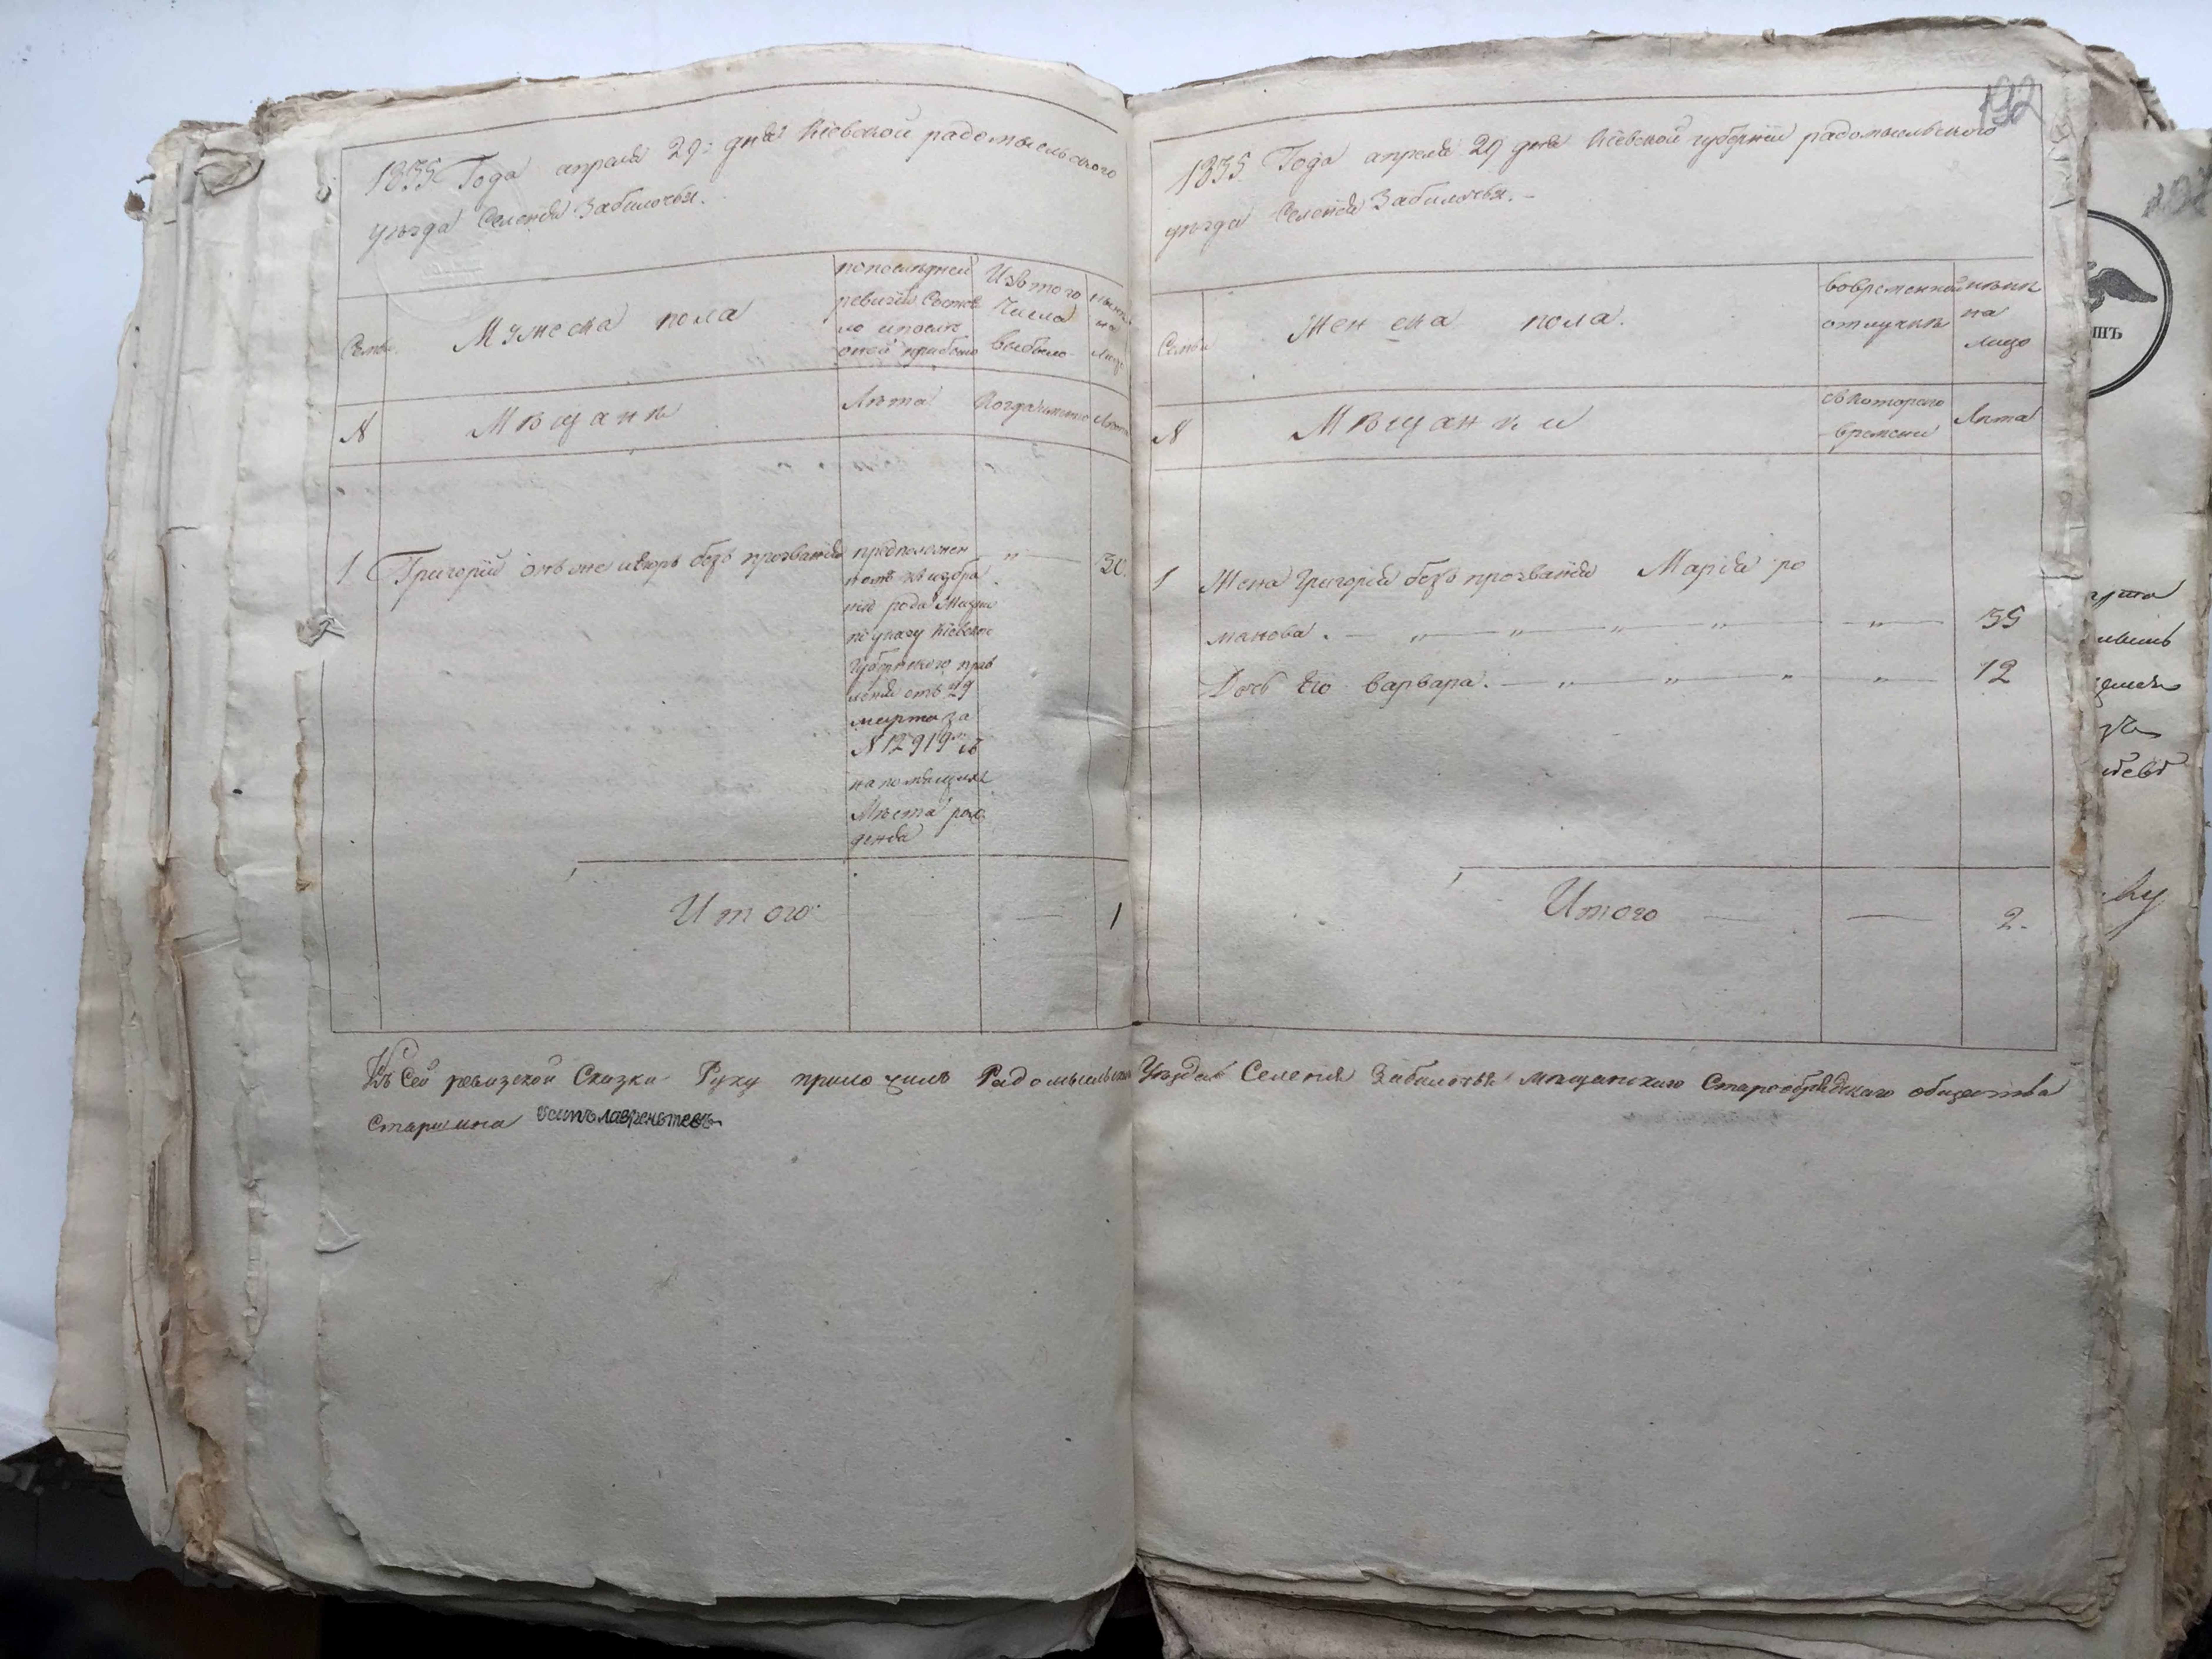 1835 Года апреля 29: дня Кіевской радомысльского
уезда Селенія Забилочья.
Семьи
Мужеска пола
попоследней
ревизіи Состоя
ло ипосле
оной прибыло
Изътого
Числа
выбыло
ныне
на
лицо
N
Мѣщане
Лѣта
Когдаименно
Лѣта
1 Григорій онъ же безъ прозванія
предположен
рода жизни
по указу Кіевского
Губернского прав
ленія отъ 29
марта за
N 12919м съ
Мѣста рож
денія
30.
Итого
1
192
1835 Года апреля 29 дня Кіевской губерніи радомысльского
уезда Селенія Забилочья.
Семьи
Женска пола.
вовременной
отлучке
ныне
на
лицо
N
Мѣщанки
съ Которого
времени
Лѣта
1 Жена Григорія безъ прозванія Марія ро
манова. 35
Дочь Его варвара. 12
Итого 2.
Къ Сей ревизской Сказки Руку приложилъ Радомысльскаго Уезда Селенія Забилочья мещанского Старообрядскаго общества
Старшина осипъ лаврентевъ
ШЪ